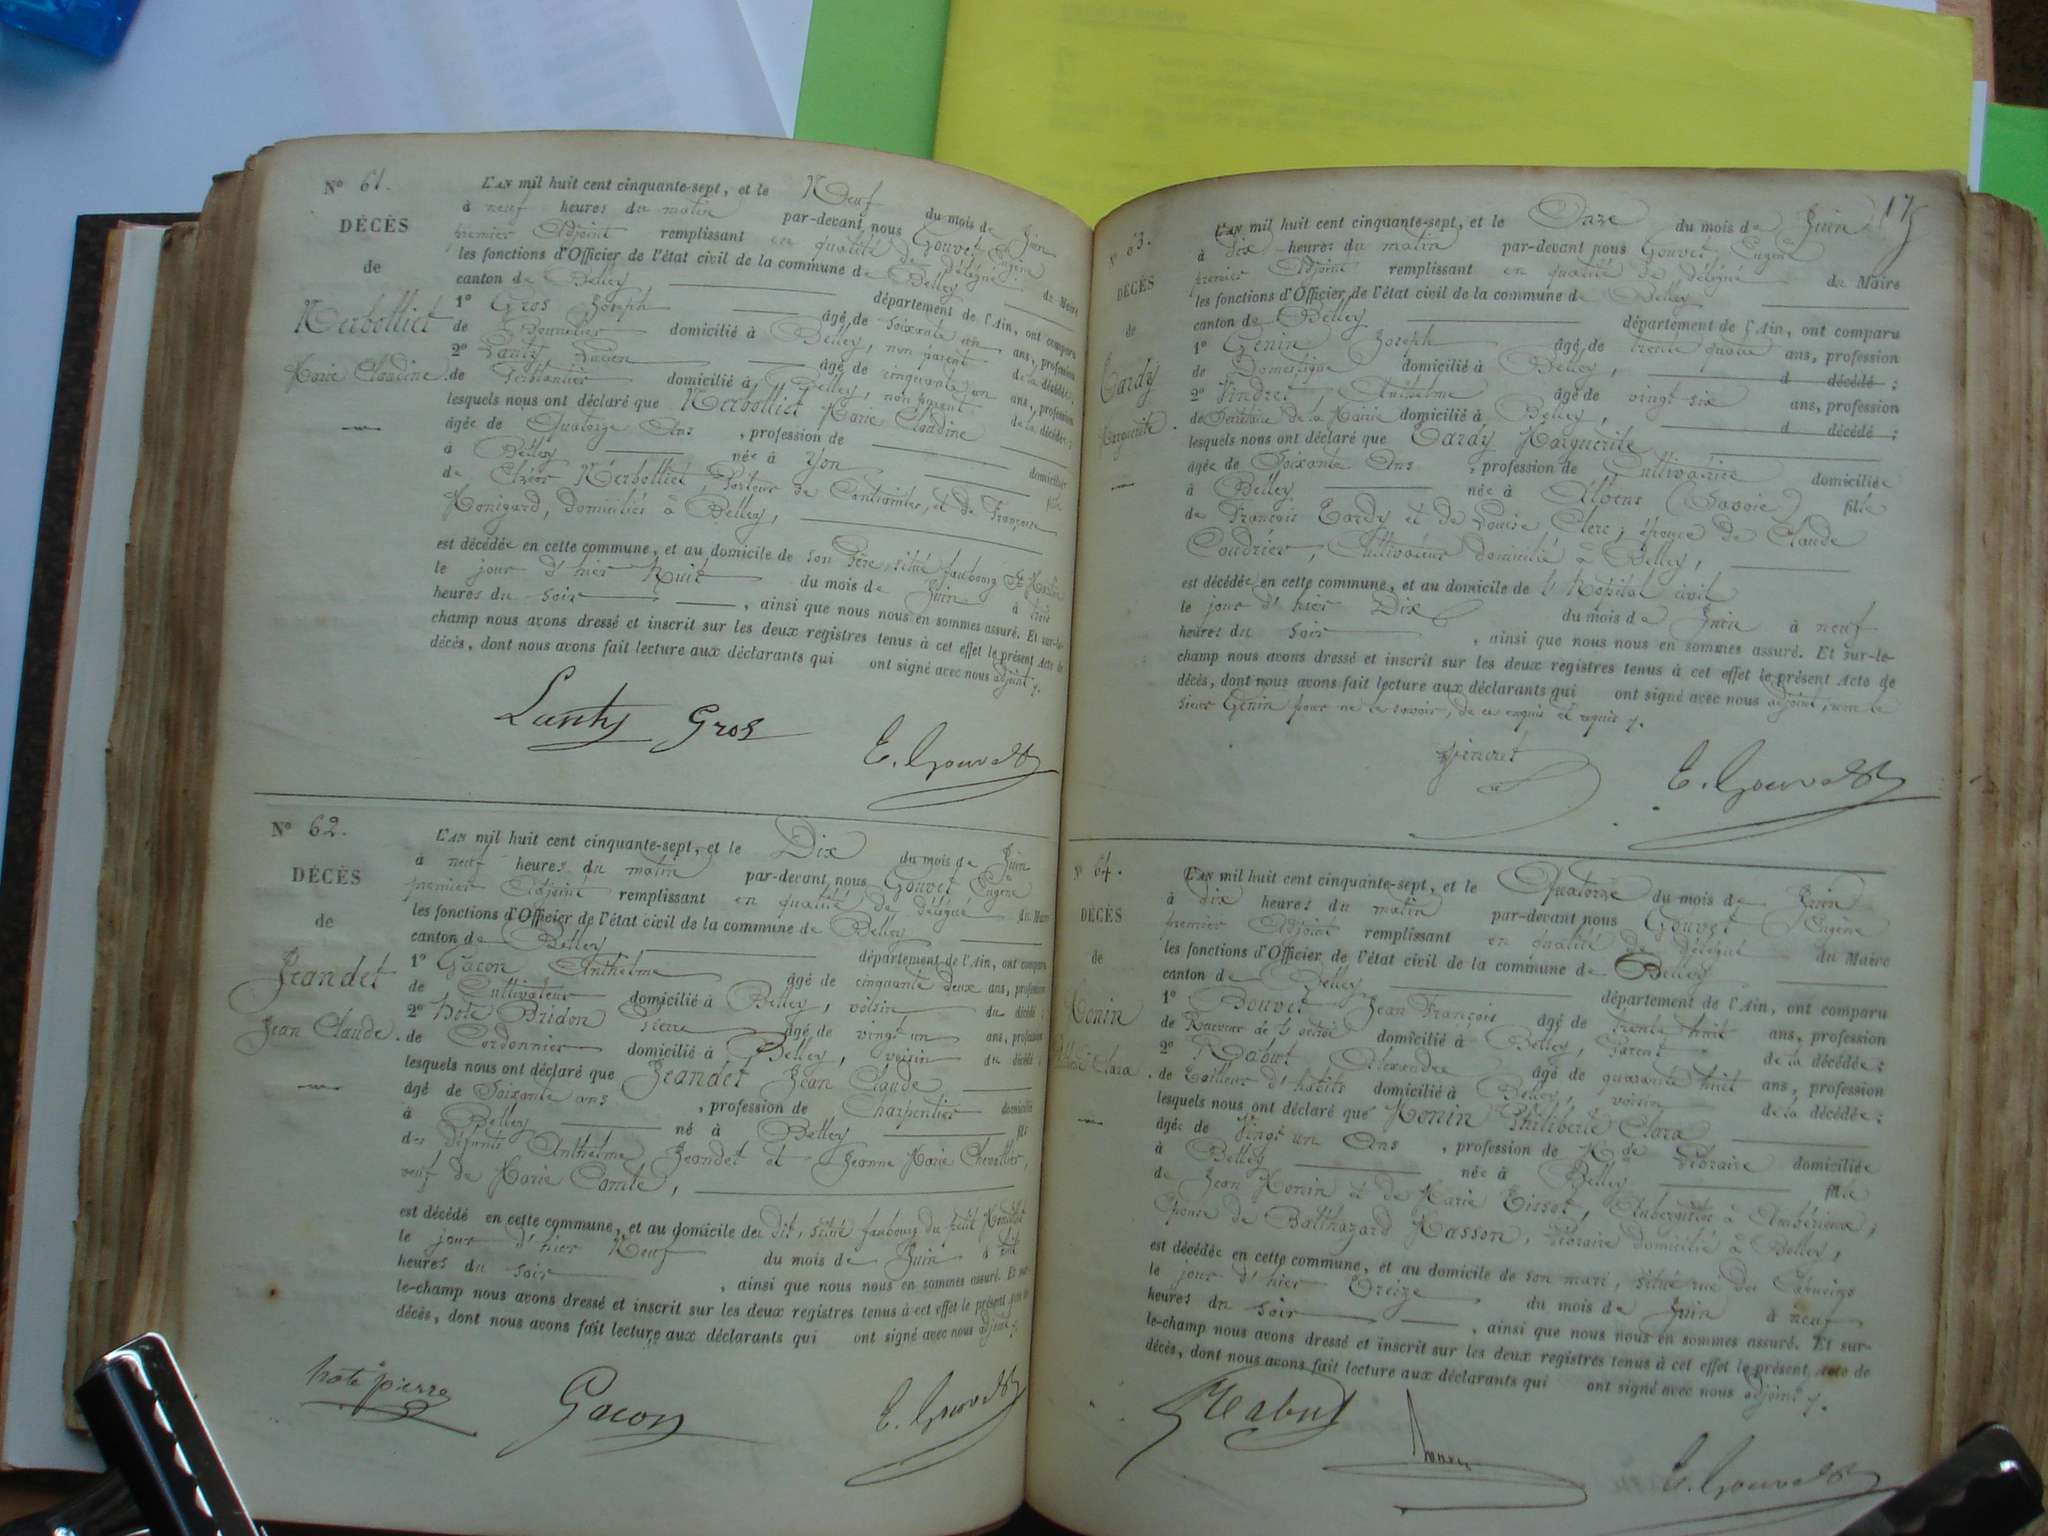 N° 61.
DÉCÈS
de
Nerbolliet
Marie Claudine.
L'AN mil huit cent cinquante-sept, et le Neuf du mois de Juin
à neuf heures du matin par-devant nous Gouvet Eugène
premier Adjoint remplissant en qualité de délégué du Maire
les fonctions d'Officier de l'état civil de la commune de Belley
canton de Belley département de l'Ain, ont comparu
1° Gros Joseph âgé de soixante un ans, profession
de domicilié à Belley, non parent de la décédée;
2° Lanty, Lucien âgé de cinquante un ans, profession
de Ferblantier domicilié à Belley, non parent de la décédée;
lesquels nous ont déclaré que Nerbolliet Marie Claudine
âgée de Quatorze Ans, profession de domiciliée
à Belley née à Lyon fille
de Nerbolliet, Porteur de Contraintes, et de Françoise
Monigard, domiciliés à Belley,
est décédée en cette commune, et au domicile de son Père, situé faubourg St Martin
le jour d'hier Huit du mois de Juin à trois
heures du soir, ainsi que nous nous en sommes assuré. Et sur-le-
champ nous avons dressé et inscrit sur les deux registres tenus à cet effet le présent Acte de
décès, dont nous avons fait lecture aux déclarants qui ont signé avec nous adjoint.
Lanty Gros E. Gouvet
N° 62.
DÉCÈS
de
Jeandet
Jean Claude.
L'AN mil huit cent cinquante-sept, et le Dix du mois de Juin
à neuf heures du matin par-devant nous Gouvet Eugène
premier Adjoint remplissant en qualité de délégué du Maire
les fonctions d'Officier de l'état civil de la commune de Belley
canton de Belley, département de l'Ain, ont comparu
1° Gacon Anthelme âgé de cinquante deux ans, profession
de Cultivateur domicilié à Belley, voisin du décédé;
2° hote Bridon Pierre âgé de vingt un ans, profession
de Cordonnier domicilié à Belley, voisin du décédé;
lesquels nous ont déclaré que Jeandet Jean Claude
âgé de Soixante ans, profession de Charpentier domicilié
à Belley né à Belley fils
des défunts Anthelme Jeandet et Jeanne Marie Chevallier,
veuf de Marie Comte,
est décédé en cette commune, et au domicile du dit, situé faubourg du petit
le jour d'hier Neuf du mois de Juin à
heures du soir, ainsi que nous nous en sommes assuré. Et sur-
le-champ nous avons dressé et inscrit sur les deux registres tenus à cet effet le présent acte de
décès, dont nous avons fait lecture aux déclarants qui ont signé avec nous adjoint.
hote pierre Gacon E. Gouvet
17
N° 63.
DÉCÈS
de
Tardy
Marguerite.
L'AN mil huit cent cinquante-sept, et le Onze du mois de Juin
à dix heures du matin par-devant nous Gouvet Eugène
premier Adjoint remplissant en qualité de délégué du Maire
les fonctions d'Officier de l'état civil de la commune de Belley
canton de Belley département de l'Ain, ont comparu
1° Génin Joseph âgé de trente quatre ans, profession
de Domestique domicilié à Belley, d décédé;
2° Vindret Anthelme âgé de vingt six ans, profession
de Secrétaire de la Mairie domicilié à Belley, d décédé;
lesquels nous ont déclaré que Tardy Marguerite
âgée de Soixante Ans, profession de Cultivatrice domiciliée
à Belley née à Albens (Savoie) fille
de François Tardy et de Louise Clerc; épouse de Claude
Coudrier, Cultivateur domicilié à Belley,
est décédée en cette commune, et au domicile de l'Hopital civil
le jour d'hier Dix du mois de Juin à neuf
heures du soir, ainsi que nous nous en sommes assuré. Et sur-le-
champ nous avons dressé et inscrit sur les deux registres tenus à cet effet le présent Acte de
décès, dont nous avons fait lecture aux déclarants qui ont signé avec nous adjoint, non le
sieur Génin pour ne le savoir, de ce enquis et requis.
Vindret E. Gouvet
N° 64.
DÉCÈS
de
Monin
Clara.
L'AN mil huit cent cinquante-sept, et le Quatorze du mois de Juin
à dix heures du matin par-devant nous Gouvet Eugène
premier Adjoint remplissant en qualité de délégué du Maire
les fonctions d'Officier de l'état civil de la commune de Belley
canton de Belley département de l'Ain, ont comparu
1° Bouvet Jean François âgé de trente huit ans, profession
de Receveur de l'octroi domicilié à Belley, Parent de la décédée;
2° Rabut Alexandre âgé de quarante huit ans, profession
de Tailleur d'habits domicilié à Belley, voisin de la décédée;
lesquels nous ont déclaré que Monin Philiberte Clara
âgée de Vingt un Ans, profession de Mde Libraire domiciliée
à Belley née à Belley fille
de Jean Monin et de Marie Tissot, Aubergistes à Ambérieux;
Epouse de Balthazard Masson, Libraire domicilié à Belley,
est décédée en cette commune, et au domicile de son mari, situé rue des Capucins
le jour d'hier Treize du mois de Juin à neuf
heures du soir, ainsi que nous nous en sommes assuré. Et sur-
le-champ nous avons dressé et inscrit sur les deux registres tenus à cet effet le présent Acte de
décès, dont nous avons fait lecture aux déclarants qui ont signé avec nous adjoint.
Rabut E. Gouvet